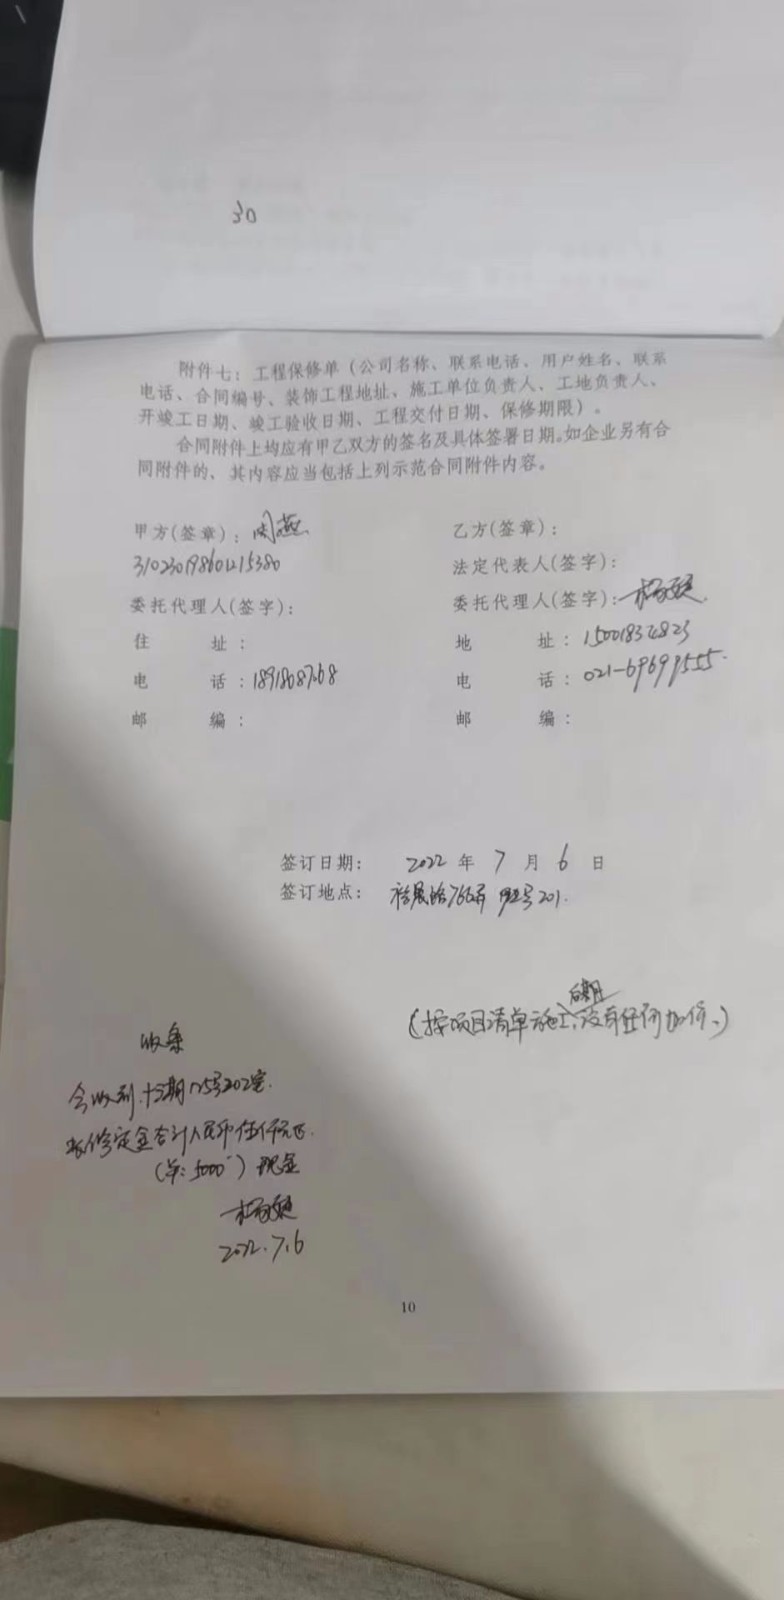 30
附件七：工程保修单（公司名称、联系电话、用户姓名、联系
电话、合同编号、装饰工程地址、施工单位负责人、工地负责人、
开竣工日期、竣工验收日期、工程交付日期、保修期限）。
合同附件上均应有甲乙双方的签名及具体签署日期。如企业另有合
同附件的、其内容应当包括上列示范合同附件内容。
甲方(签章)：周燕
乙方(签章)：
310230198601215380
法定代表人(签字)：
委托代理人(签字)：
委托代理人(签字)：
住 址：
地 址：15001834823
电 话：18918687168
电 话：021-69699555
邮 编：
邮 编：
签订日期： 2022 年 7 月 6 日
签订地点： 766弄 号201.
后期
(按项目清单施工,没有任何加价、)
收条
今收到.十三期175号202室.
装修定金合计人民币伍仟元正.
(￥:5000-) 现金
2022.7.6
10